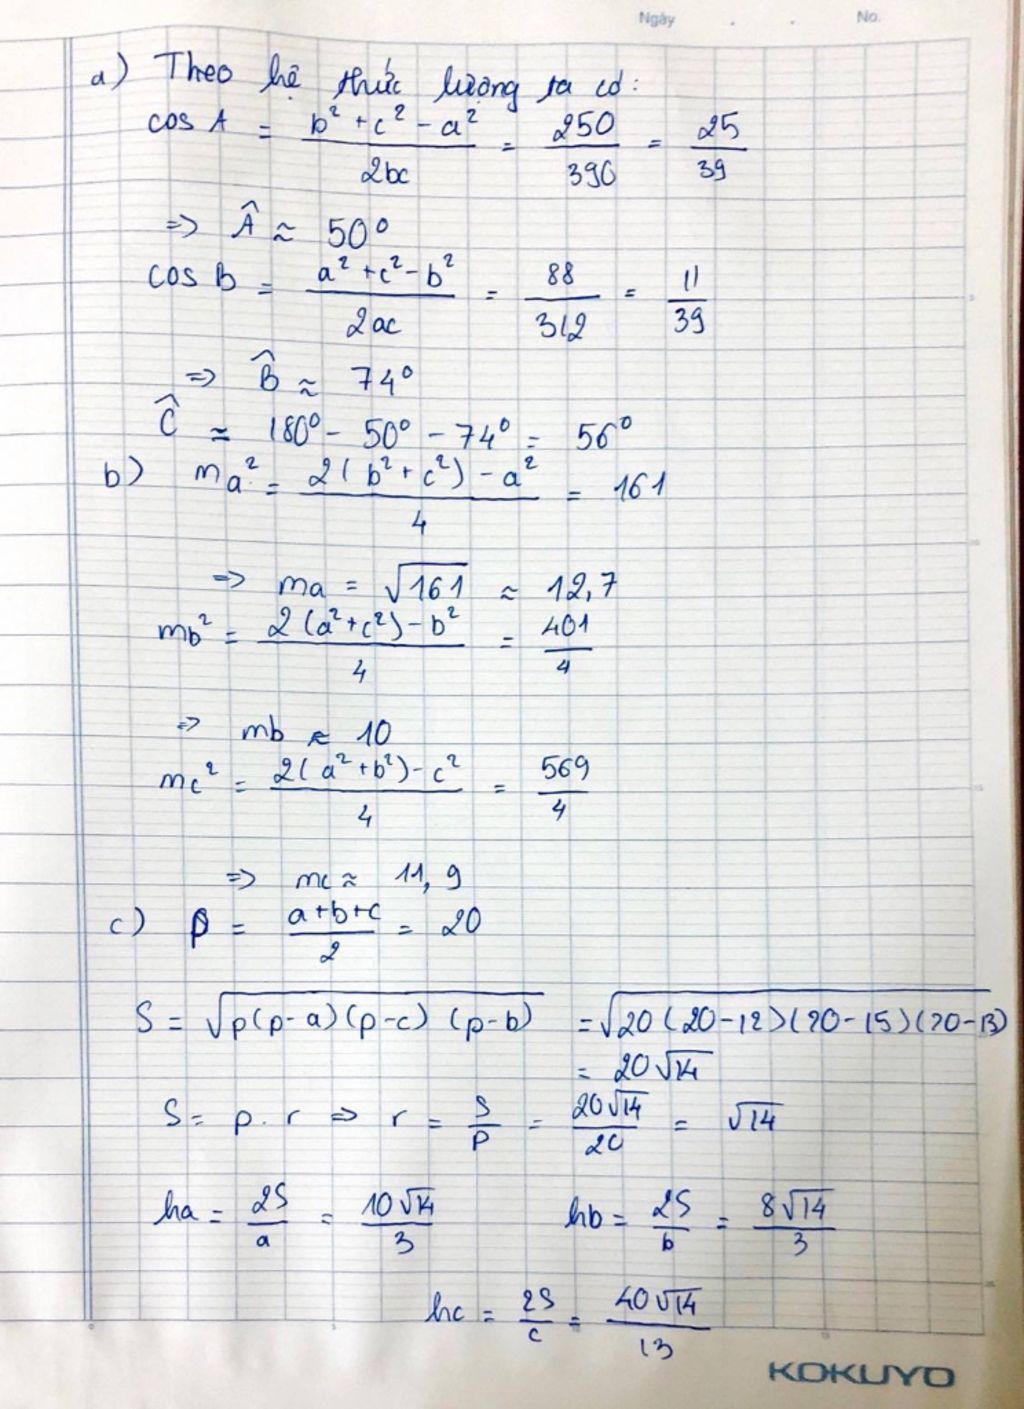 Ngày . . No.
a) Theo hệ thức lượng ta có:
cos A = (b² + c² - a²)/(2bc) = 250/390 = 25/39
=> Â ≈ 50°
cos B = (a² + c² - b²)/(2ac) = 88/312 = 11/39
=> B̂ ≈ 74°
Ĉ ≈ 180° - 50° - 74° = 56°
b) ma² = (2(b² + c²) - a²)/4 = 161
=> ma = √161 ≈ 12,7
mb² = (2(a² + c²) - b²)/4 = 401/4
=> mb ≈ 10
mc² = (2(a² + b²) - c²)/4 = 569/4
=> mc ≈ 11,9
c) p = (a+b+c)/2 = 20
S = √(p(p-a)(p-c)(p-b)) = √(20(20-12)(20-15)(20-13))
= 20√14
S = p.r => r = S/p = 20√14/20 = √14
ha = 2S/a = 10√14/3 hb = 2S/b = 8√14/3
hc = 2S/c = 40√14/13
KOKUYO